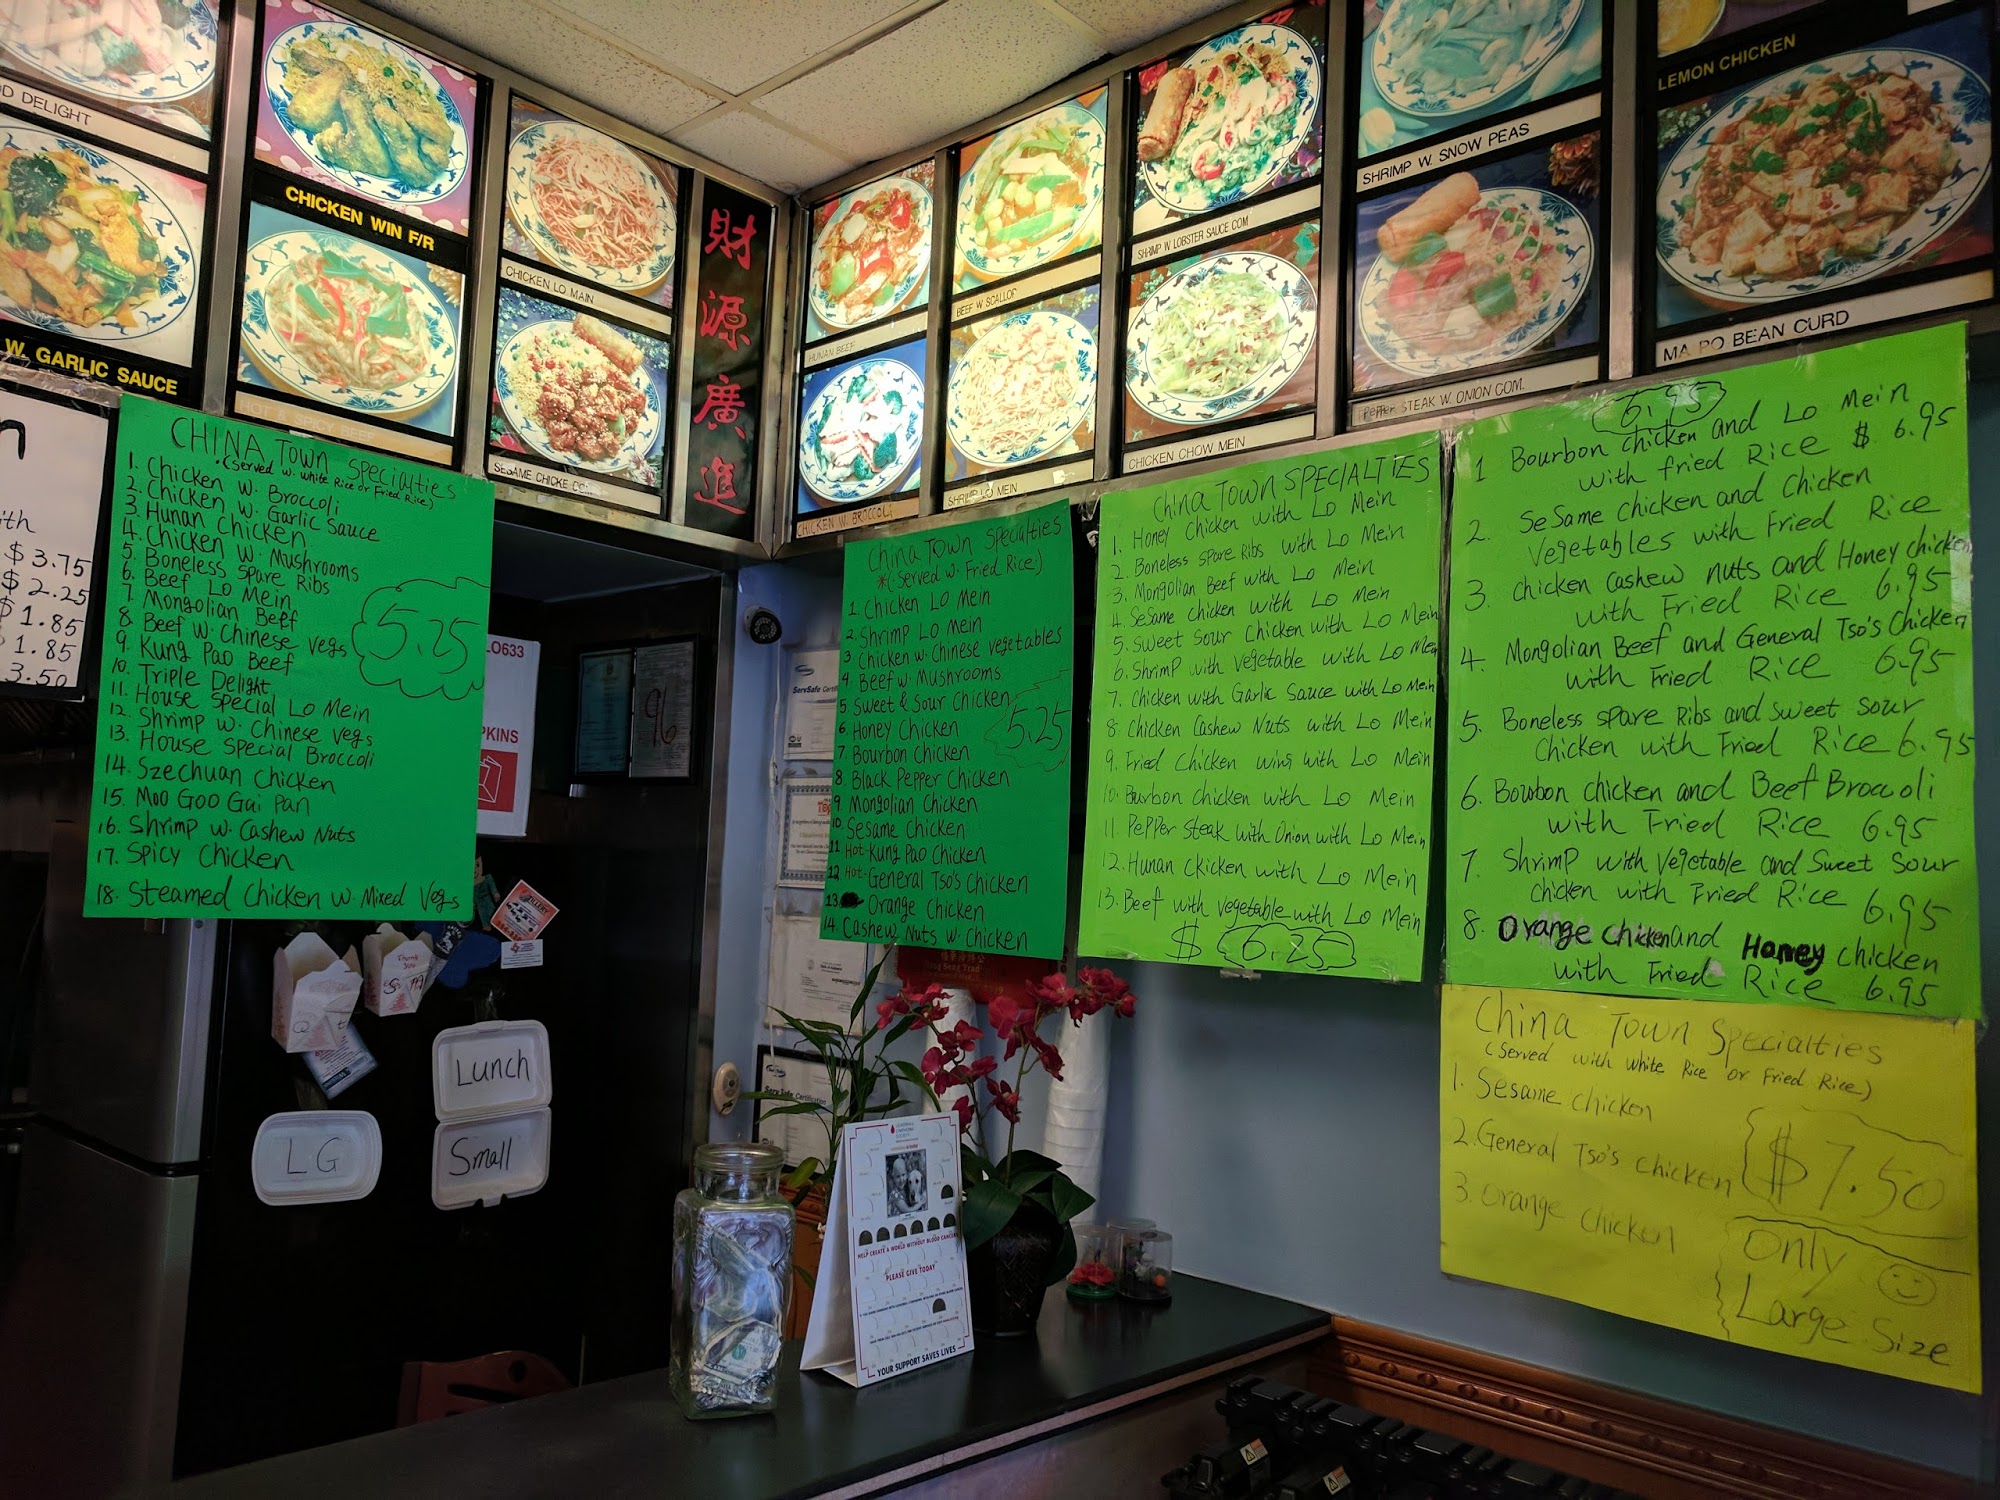 D DELIGHT
W. GARLIC SAUCE
CHICKEN WIN F/R
HOT & SPICY BEEF
CHICKEN LO MAIN
SESAME CHICKE
財源廣進
HUNAN BEEF
CHICKEN W. BROCCOLI
BEEF W. SCALLOP
SHRIMP LO MEIN
SHRIMP W LOBSTER SAUCE COM
CHICKEN CHOW MEIN
SHRIMP W. SNOW PEAS
PEPPER STEAK W. ONION COM.
LEMON CHICKEN
MA PO BEAN CURD
$3.75
$2.25
$1.85
1.85
3.50
CHINA Town Specialties
(Served w. White Rice or Fried Rice)
1. Chicken w. Broccoli
2. Chicken w. Garlic Sauce
3. Hunan Chicken
4. Chicken w. Mushrooms
5. Boneless Spare Ribs
6. Beef Lo Mein
7. Mongolian Beef
8. Beef w. Chinese Vegs
9. Kung Pao Beef
10. Triple Delight
11. House Special Lo Mein
12. Shrimp w. Chinese Vegs
13. House Special Broccoli
14. Szechuan Chicken
15. Moo Goo Gai Pan
16. Shrimp w. Cashew Nuts
17. Spicy Chicken
18. Steamed Chicken w. Mixed Vegs
5.25
LO633
PKINS
96
ServSafe
China Town Specialties
*(Served w. Fried Rice)
1. Chicken Lo Mein
2. Shrimp Lo Mein
3 Chicken w. Chinese Vegetables
4. Beef w. Mushrooms
5. Sweet & Sour Chicken
6. Honey Chicken
7. Bourbon Chicken
8. Black Pepper Chicken
9. Mongolian Chicken
10. Sesame Chicken
11 Hot Kung Pao Chicken
12 Hot General Tso's Chicken
13 Orange Chicken
14 Cashew Nuts w. Chicken
5.25
China Town SPECIALTIES
1. Honey Chicken with Lo Mein
2. Boneless Spare Ribs with Lo Mein
3. Mongolian Beef with Lo Mein
4. SeSame chicken with Lo Mein
5. Sweet Sour Chicken with Lo Mein
6. Shrimp with Vegetable with Lo Mein
7. Chicken with Garlic Sauce with Lo Mein
8. Chicken Cashew Nuts with Lo Mein
9. Fried Chicken wing with Lo Mein
10. Burbon chicken with Lo Mein
11. PePPer steak with Onion with Lo Mein
12. Hunan Chicken with Lo Mein
13. Beef with vegetable with Lo Mein
$ 6.25
6.95
1 Bourbon chicken and Lo Mein
with fried Rice $ 6.95
2. SeSame chicken and Chicken
Vegetables with Fried Rice
3. Chicken Cashew nuts and Honey chicken
with Fried Rice 6.95
4. Mongolian Beef and General Tso's Chicken
with Fried Rice 6.95
5. Boneless spare Ribs and Sweet Sour
Chicken with Fried Rice 6.95
6. Bourbon chicken and Beef Broccoli
with Fried Rice 6.95
7. Shrimp with Vegetable and Sweet Sour
chicken with Fried Rice 6.95
8. Orange chicken and Honey chicken
with Fried Rice 6.95
China Town Specialties
(Served with White Rice or Fried Rice)
1. Sesame chicken
2. General Tso's chicken
3. Orange chicken
$7.50
Only
Large Size
Thank you
Lunch
Small
LG
HELP CREATE A WORLD WITHOUT BLOOD CANCER
PLEASE GIVE TODAY
YOUR SUPPORT SAVES LIVES